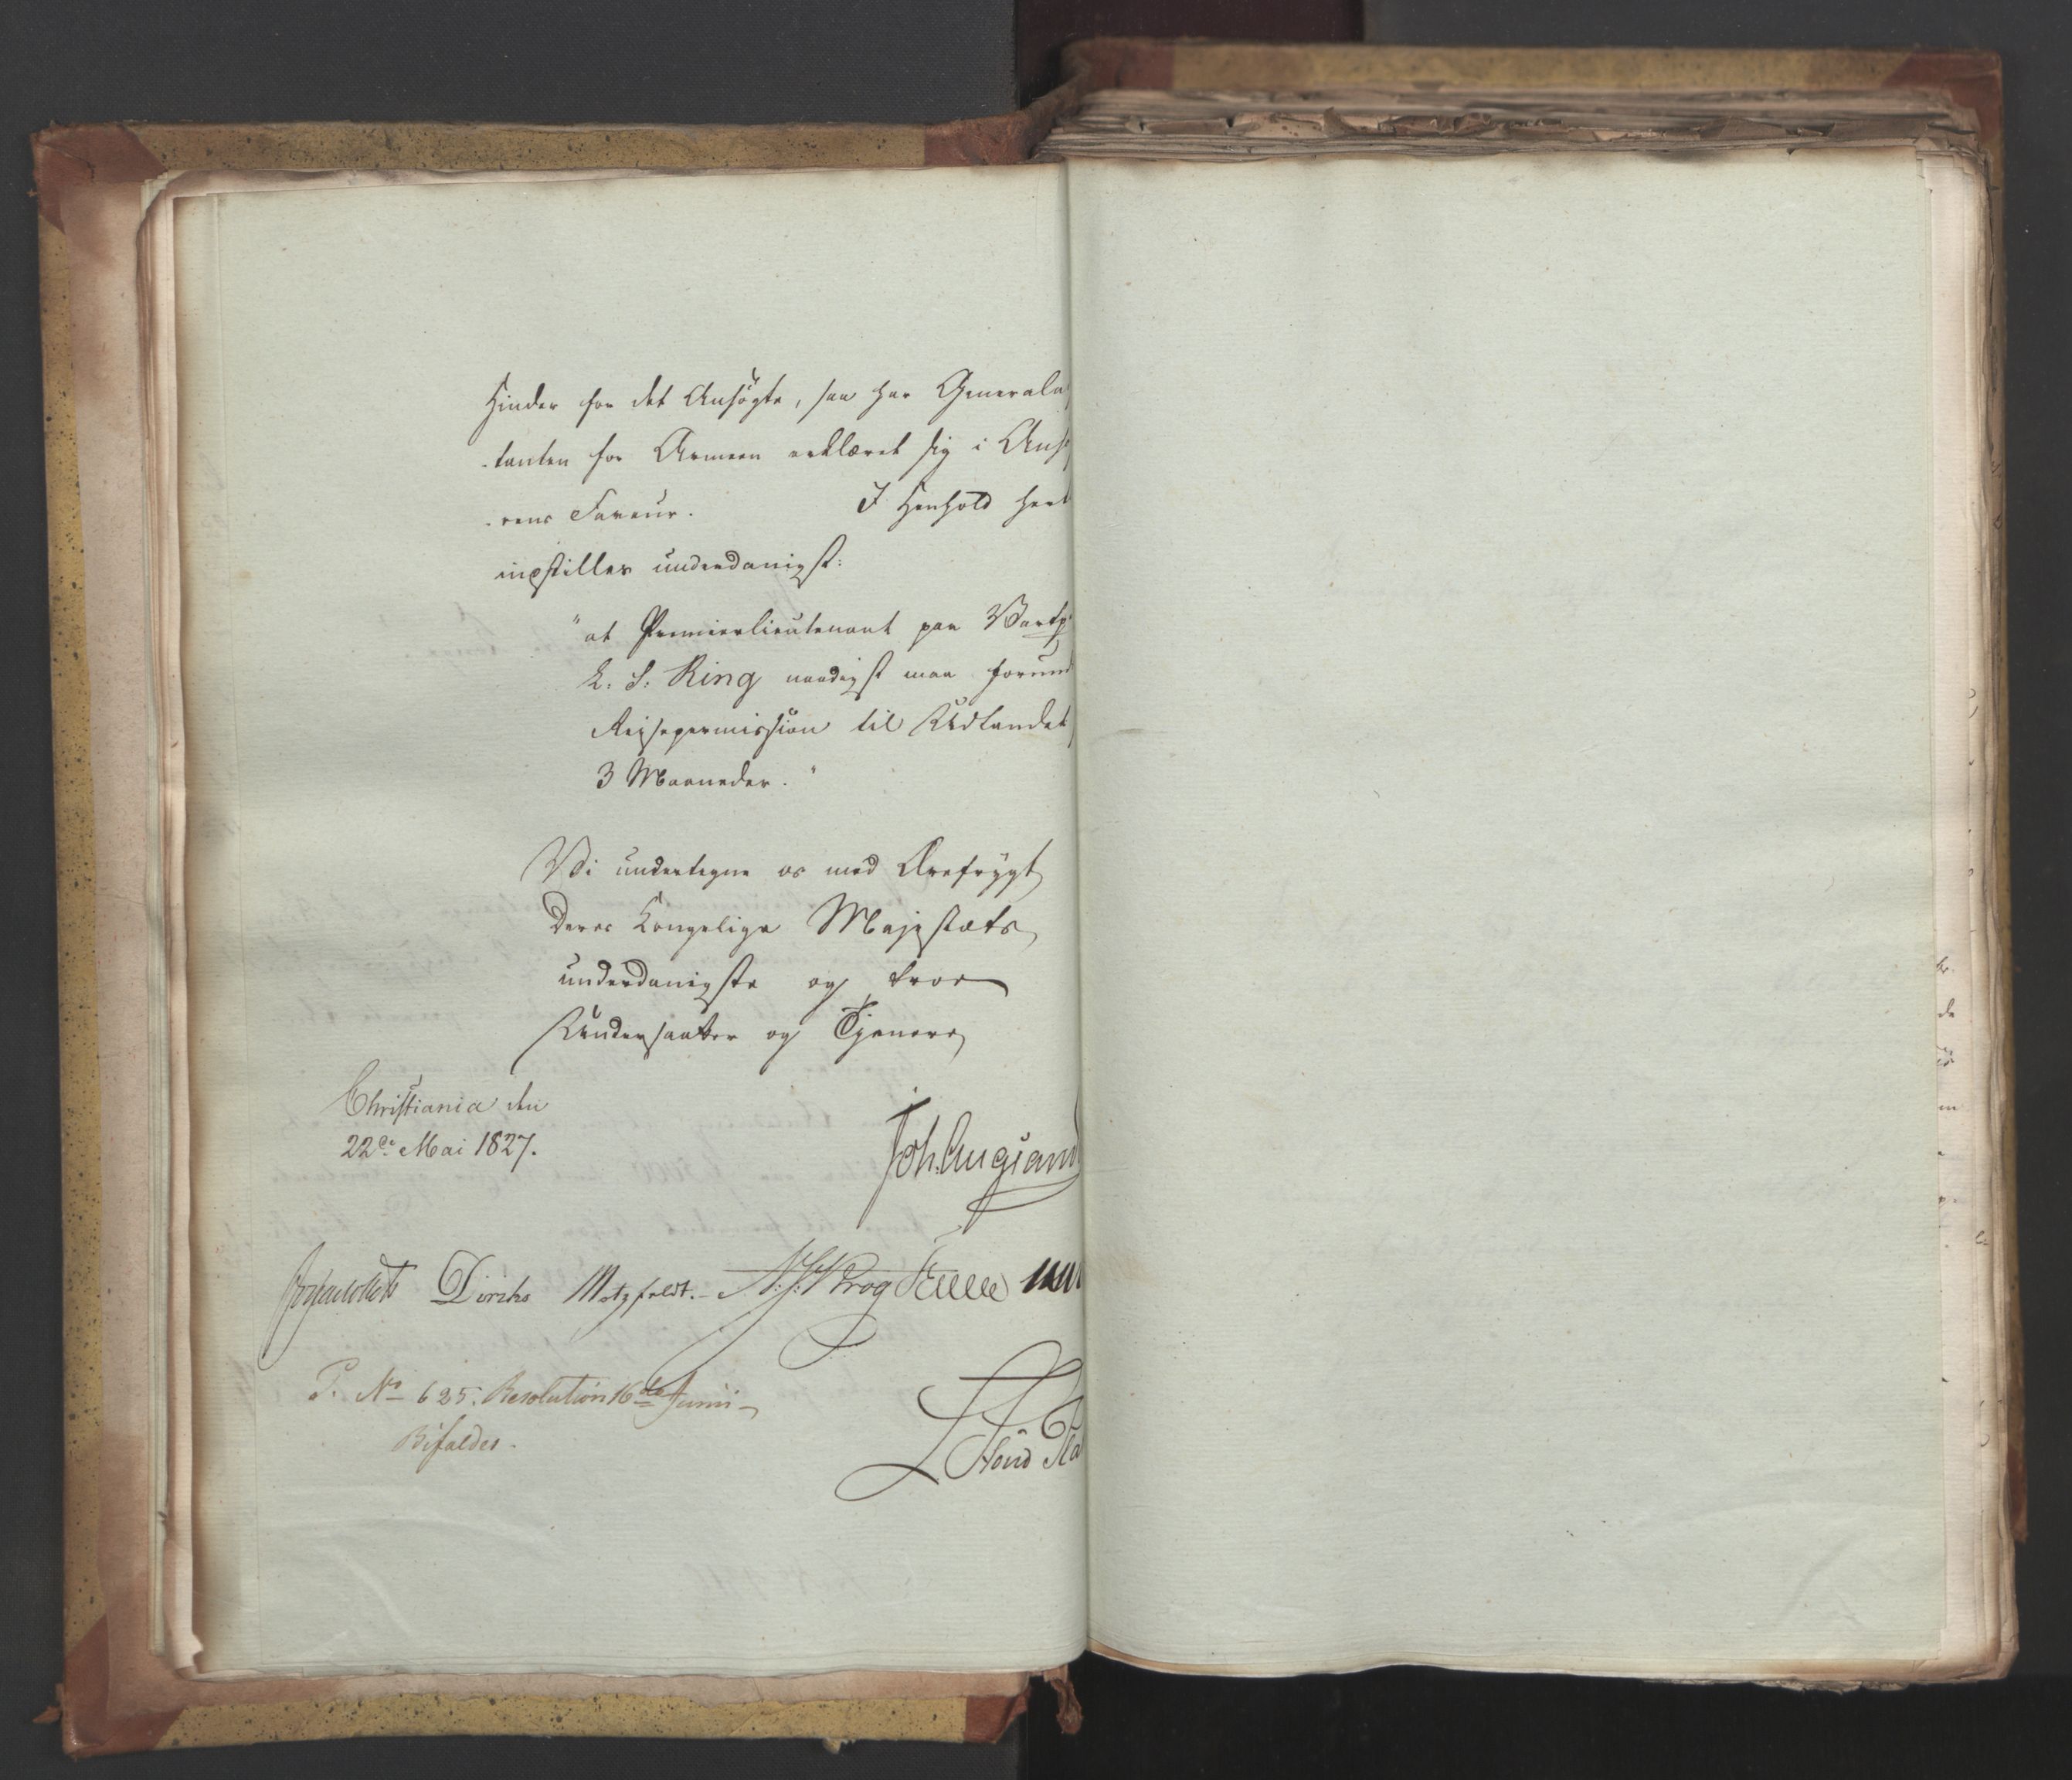 Hinder for det Ansøgte, saa har Generala
-tanten for Armeen erklæret sig i Ans
-rens Faveur. I Henhold hert
indstilles underdanigst:
"at Premierlieutenant paa Vartp
L. S. Ring naadigst maa forund
Reisepermission til Udlandet
3 Maaneder."
Vi undertegne os med Ærefrygt
Deres Kongelige Majestæts
underdanigste og troe
Undersaatter og Tjenere
Christiania den
22de Mai 1827.
Joh. Aug Sand
Diriks Motzfeldt. N. J. Krog
P. No 625. Resolution 16de Junii
Bifaldes.